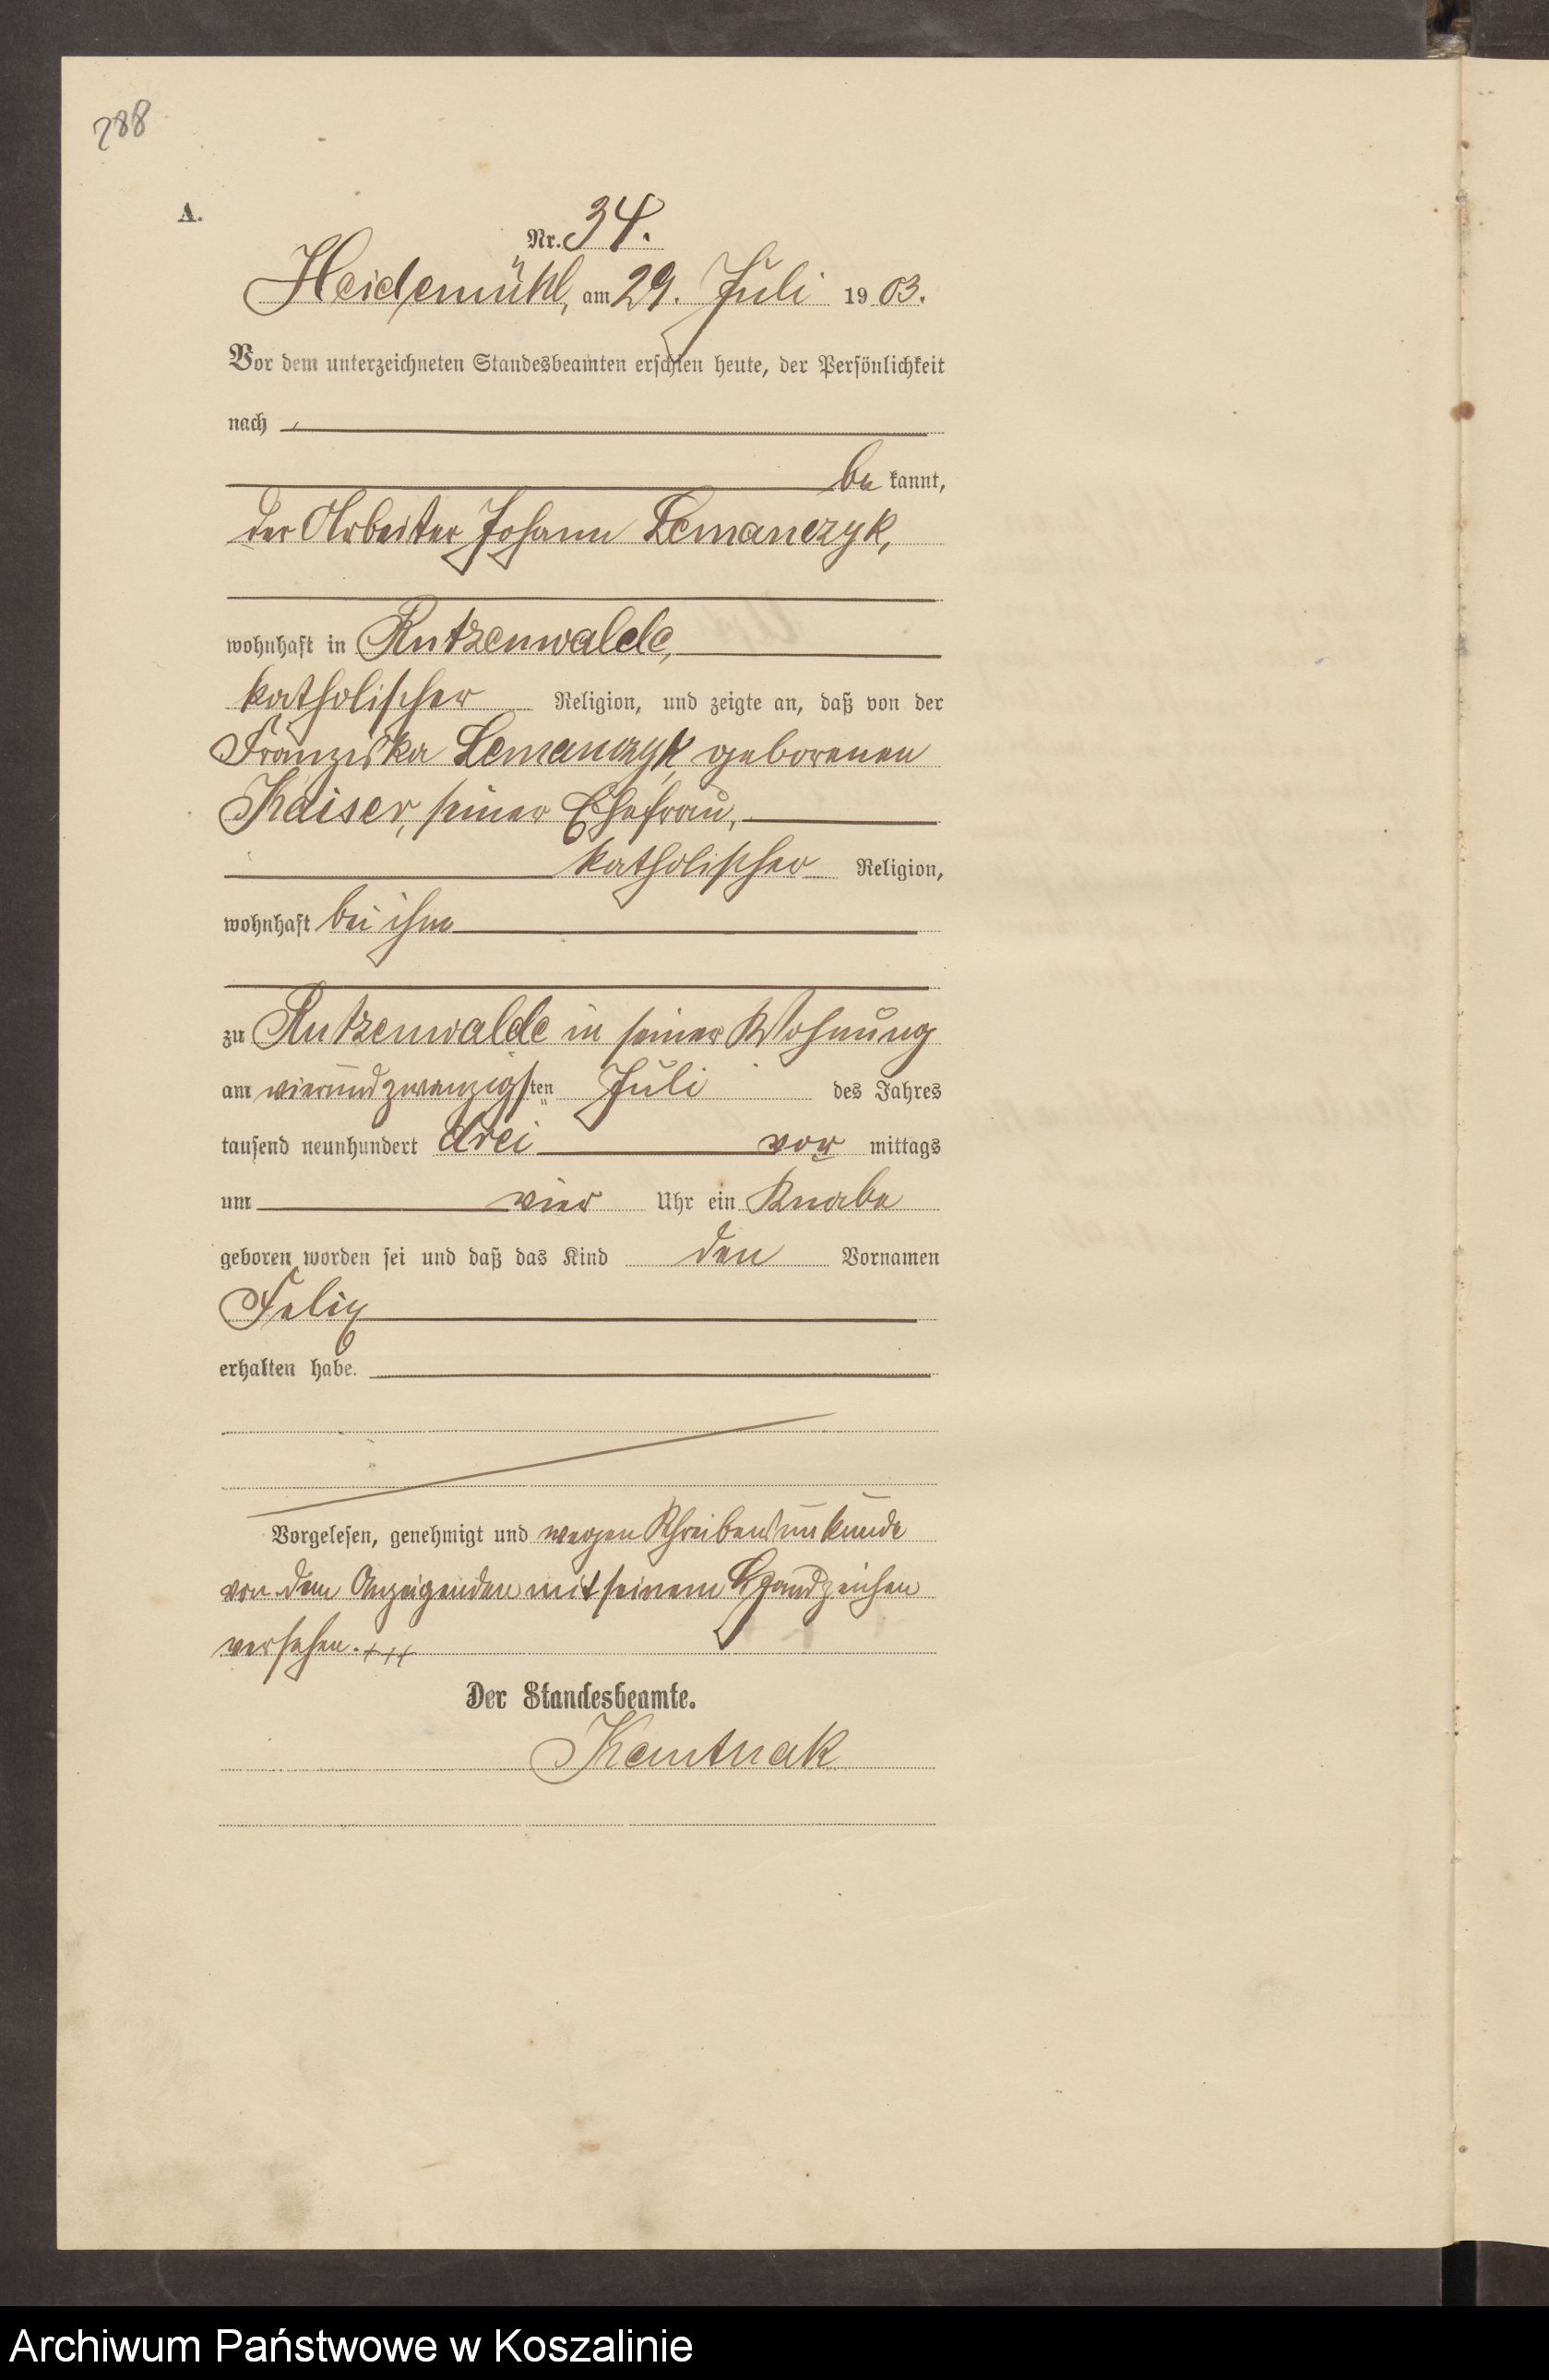 288
A.
Nr. 34.
Heidemühl, am 29. Juli 1903.
Vor dem unterzeichneten Standesbeamten erschien heute, der Persönlichkeit
nach
be kannt,
der Arbeiter Johann Lemanczyk,
wohnhaft in Rutzenwalde,
katholischer Religion, und zeigte an, daß von der
Franziska Lemanczyk geborenen
Kaiser, seiner Ehefrau,
katholischer Religion,
wohnhaft bei ihm
zu Rutzenwalde in seiner Wohnung
am vierundzwanzigsten Juli des Jahres
tausend neunhundert drei vor mittags
um vier Uhr ein Knabe
geboren worden sei und daß das Kind den Vornamen
Felix
erhalten habe.
Vorgelesen, genehmigt und wegen Schreibensunkunde
von dem Anzeigenden mit seinem Handzeichen
versehen. +++
Der Standesbeamte.
Kantnak
Archiwum Państwowe w Koszalinie